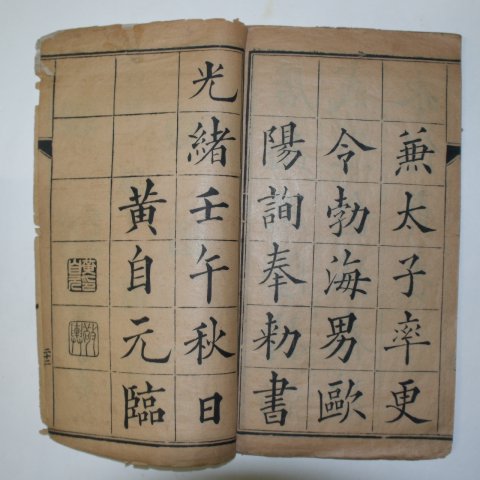 兼太子率更
令勃海男歐
陽詢奉勅書
光緒壬午秋日
黃自元臨
二十二